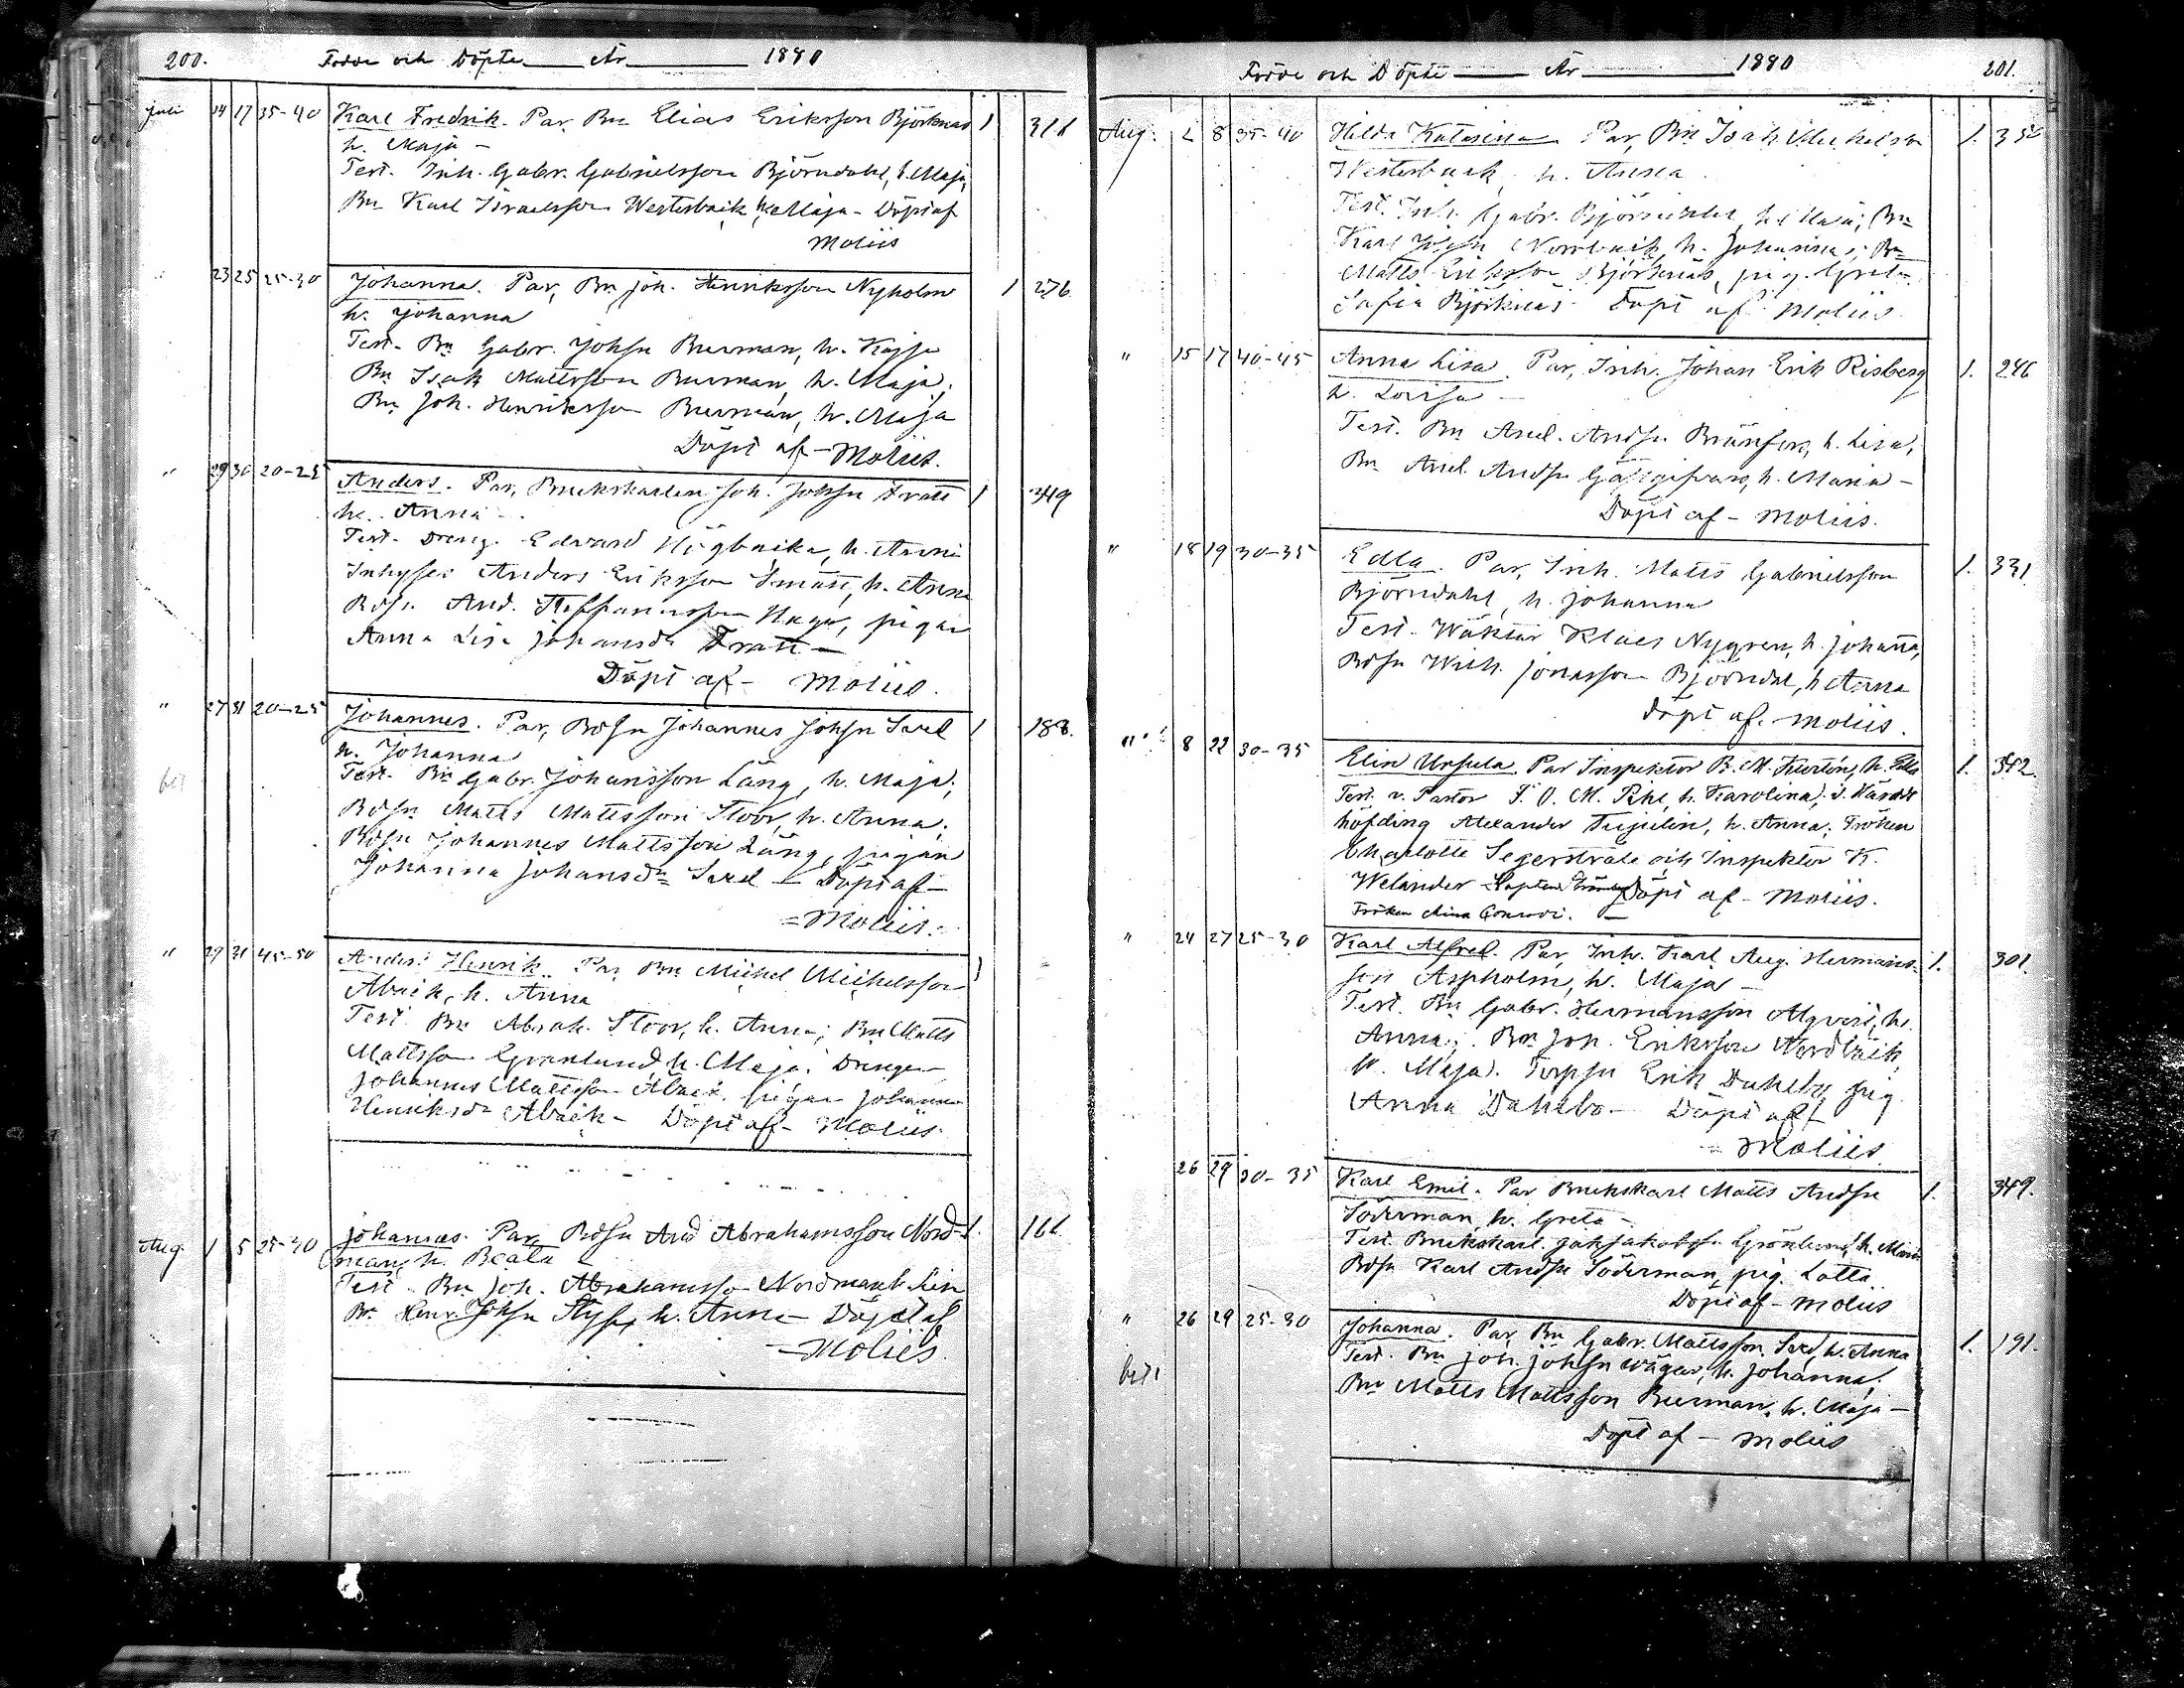 200. Födde och Döpte År 1880
Juli 14 17 35-40 Karl Fredrik. Par. Bn Elias Eriksson Björknäs 1
h. Maja –
Test. Inh. Gabr. Gabrielsson Björndahl, h. Maja,
Bn Karl Israelsson Westerbäck, h. Maja – Döpt af
Moliis
" 23 25 25-30 Johanna. Par, Bn Joh. Henriksson Nyholm 1 276.
h. Johanna
Test. Bn Gabr. Johsn Burman, h. Kajsa
Bn Isak Mattsson Burman, h. Maja,
Bn Joh. Henriksson Burman, h. Maja
Döpt af – Moliis.
" 29 30 20-25 Anders. Par, Brukskarlen Joh. Johsn Fratt 1 349
h. Anna –
Test. Dreng. Edvard Högbacka, h. Anna
Inhyses Anders Eriksson Smått, h. Anna
Bdsn And. Steffansson Haga, pigan
Anna Lisa Johansdr Fratt –
Döpt af – Moliis.
" 27 31 20-25 Johannes. Par, Bdsn Johannes Johsn Sard 1 188.
h. Johanna
Test. Bn Gabr. Johansson Lång, h. Maja;
Bdsn Matts Mattsson Stoor, h. Anna;
Bdsn Johannes Mattsson Lång, pigan
Johanna Johansdr Sard – Döpt af –
– Moliis.
" 29 31 45-50 Anders Henrik. Par Bn Michel Michelsson 1
Åback, h. Anna
Test. Bn Abrah. Stoor, h. Anna; Bn Matts
Mattsson Granlund, h. Maja. Drengen
Johannes Mattsson Åback, pigan Johanna
Henriksdr Åback – Döpt af – Moliis.
Aug. 1 5 25-30 Johannes. Par, Bdsn And Abrahamsson Nord- 1.
man, h. Beata –
Test. Bn Joh. Abrahamsson Nordman, h. Lisa
Bn Henr. Johsn Styf, h. Anna – Döpt af
– Moliis.
Födde och Döpte År 1880 201.
Aug. 2 8 35-40 Hilda Katarina. Par, Bn Isak Michelsson 1.
Westerback, h. Anna.
Test. Inh. Gabr. Björndahl, h. Maja; Bn
Karl Johsn Norrback, h. Johanna; Bn
Matts Eriksson Björknäs, pig. Greta
Sofia Björknäs. Döpt af Moliis.
" 15 17 40-45 Anna Lisa. Par, Inh. Johan Erik Risberg 1. 246
h. Lovisa –
Test. Bn And. Andsn Brännfors, h. Lisa,
Bn And. Andsn Gästgifvars, h. Maria –
Döpt af – Moliis.
" 18 19 30-35 Edla. Par, Inh. Matts Gabrielsson 1. 331
Björndahl, h. Johanna
Test. Wäktar Klaes Nygren, h. Johanna,
Bdsn Wilh. Jonasson Björndal, h. Anna
Döpt af. Moliis.
" 8 22 30-35 Elin Ursula. Par Inspektor B. M. Kurtén, h. Edla 1. 342.
Test. v. Pastor F. O. M. Pihl, h. Karolina; v. Härads
höfding Alexander Tujulin, h. Anna; Fröken
Charlotte Segerstråle och Inspektor K.
Welander Döpt af – Moliis.
Fröken Mina Conradi. –
" 24 27 25-30 Karl Alfred. Par, Inh. Karl Aug. Hermans- 1. 301.
son Aspholm, h. Maja –
Test. Bn Gabr. Hermansson Alqvist, h.
Anna; Bn Joh. Eriksson Nordbäck,
h. Maja. Torpsn Erik Dahlbo, pig
Anna Dahlbo – Döpt af
– Moliis
26 29 30-35 Karl Emil. Par Brukskarl Matts Andsn 1. 349.
Söderman, h. Greta –
Test. Brukskarl Jak Jakobsn Grönlund, h. Maria
Bdsn Karl Andsn Söderman, pig. Lotta
Döpt af – Moliis
" 26 29 25-30 Johanna. Par, Bn Gabr. Mattsson Sard, h. Anna 1. 191.
Test. Bn Joh. Johsn Wägar, h. Johanna,
Bn Matts Mattsson Burman, h. Maja –
Döpt af – Moliis